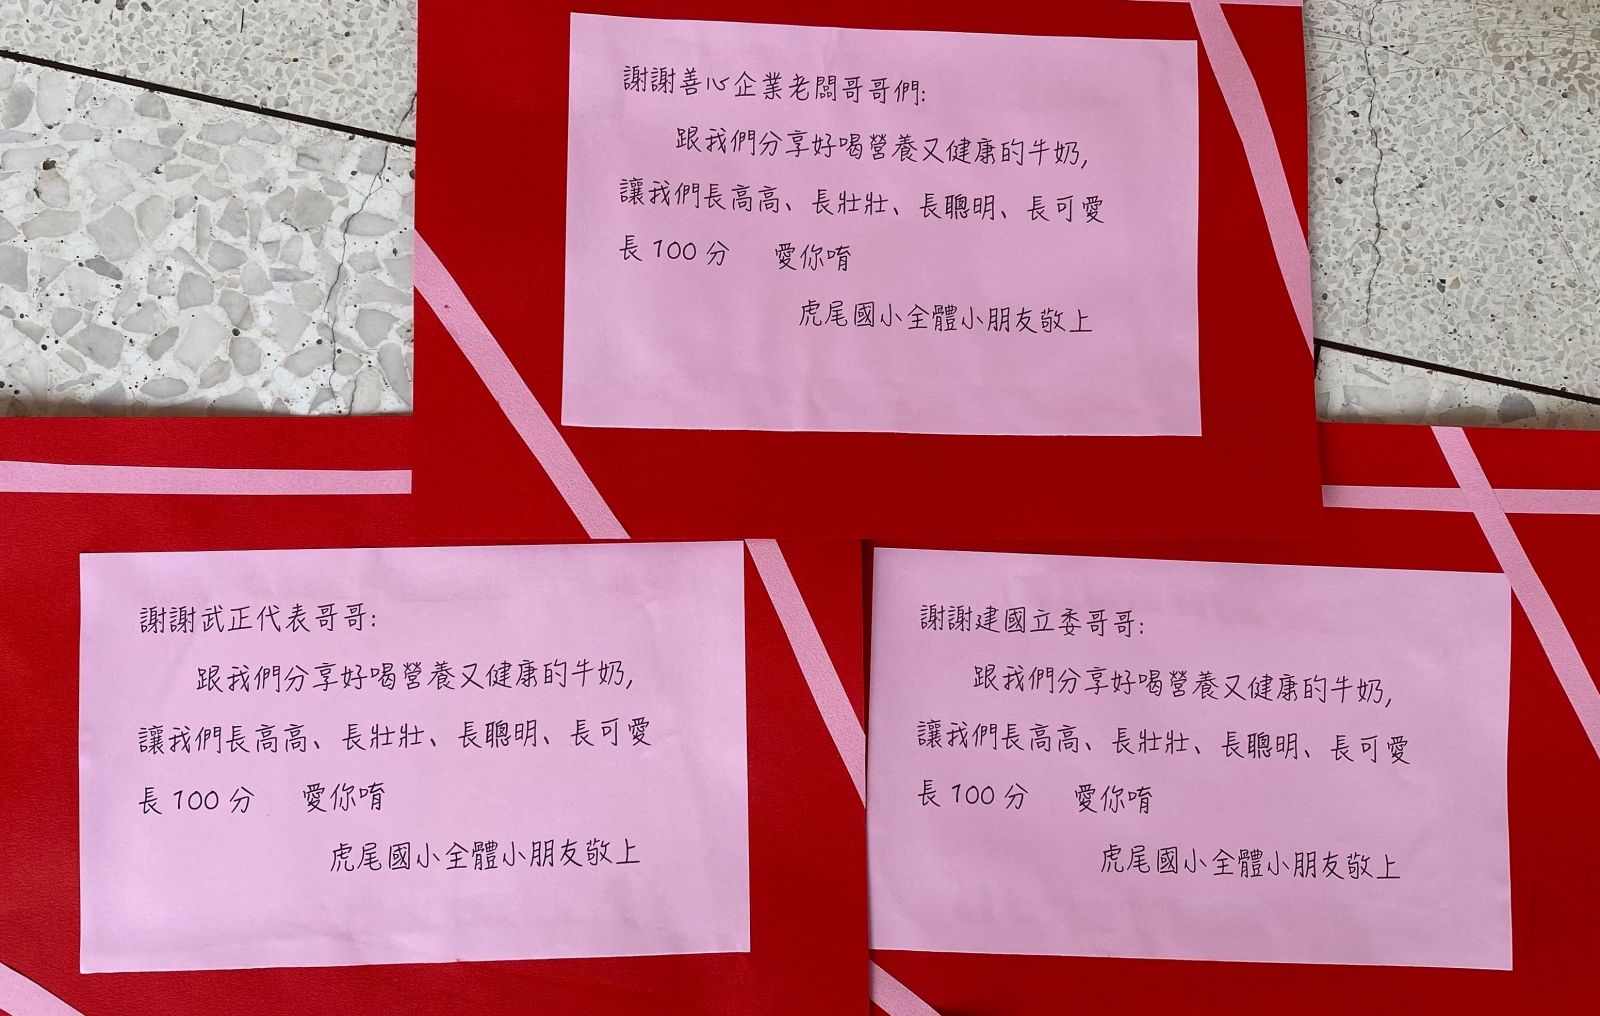 謝謝善心企業老闆哥哥們:
跟我們分享好喝營養又健康的牛奶,
讓我們長高高、長壯壯、長聰明、長可愛
長100分 愛你唷
虎尾國小全體小朋友敬上
謝謝武正代表哥哥:
跟我們分享好喝營養又健康的牛奶,
讓我們長高高、長壯壯、長聰明、長可愛
長100分 愛你唷
虎尾國小全體小朋友敬上
謝謝建國立委哥哥:
跟我們分享好喝營養又健康的牛奶,
讓我們長高高、長壯壯、長聰明、長可愛
長100分 愛你唷
虎尾國小全體小朋友敬上